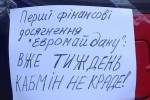 Перші фінансові
досягнення
"Євромайдану":
ВЖЕ ТИЖДЕНЬ
КАБМІН НЕ КРАДЕ!